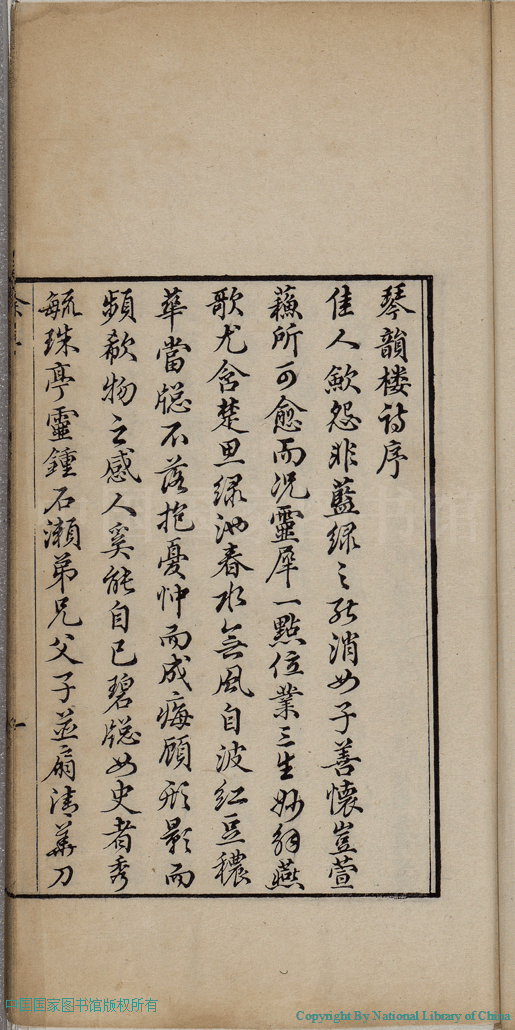 琴韻楼詩序
佳人歔怨非藍緑之能消女子善懷豈萱
蘓所可愈而况靈犀一點位業三生妙解燕
歌尤含楚思緑池春水無風自波紅豆穠
華當牕不落抱憂忡而成痗顧形影而
頻欷物之感人奚能自已碧牕女史者秀
毓珠亭靈鍾石瀬弟兄父子並扇清華刀
中国国家图书馆版权所有
Copyright By National Library of China